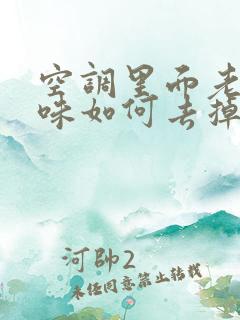 空調里面老
味如何去掉
河帥2
未经同意禁止转载